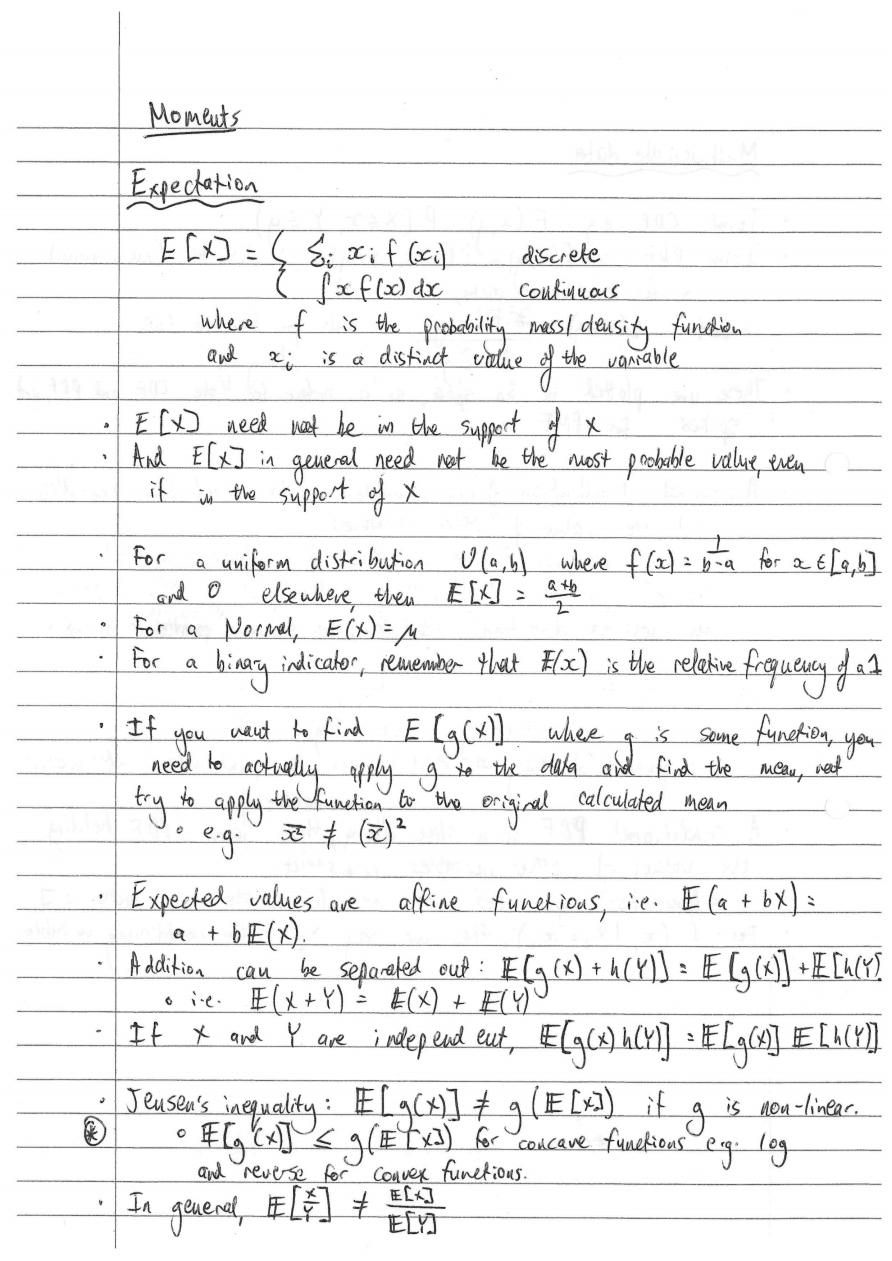 Moments
Expectation
E[X] = { Σᵢ xᵢ f(xᵢ) discrete
{ ∫x f(x) dx continuous
where f is the probability mass/density function
and xᵢ is a distinct value of the variable
• E[X] need not be in the support of X
• And E[X] in general need not be the most probable value, even
if in the support of X
• For a uniform distribution U(a,b) where f(x) = 1/(b-a) for x ∈ [a,b]
and 0 elsewhere, then E[X] = (a+b)/2
• For a Normal, E(X) = μ
• For a binary indicator, remember that E(x) is the relative frequency of a 1
• If you want to find E[g(X)] where g is some function, you
need to actually apply g to the data and find the mean, not
try to apply the function to the original calculated mean
∘ e.g. ≠ (x̄)²
• Expected values are affine functions, i.e. E(a + bX) =
a + bE(X).
• Addition can be separated out: E[g(X) + h(Y)] = E[g(X)] + E[h(Y)]
∘ i.e. E(X+Y) = E(X) + E(Y)
• If X and Y are independent, E[g(X) h(Y)] = E[g(X)] E[h(Y)]
• Jensen's inequality: E[g(X)] ≠ g(E[X]) if g is non-linear.
⊛ ∘ E[g(X)] ≤ g(E[X]) for concave functions e.g. log
and reverse for convex functions.
• In general, E[X/Y] ≠ E[X]/E[Y]